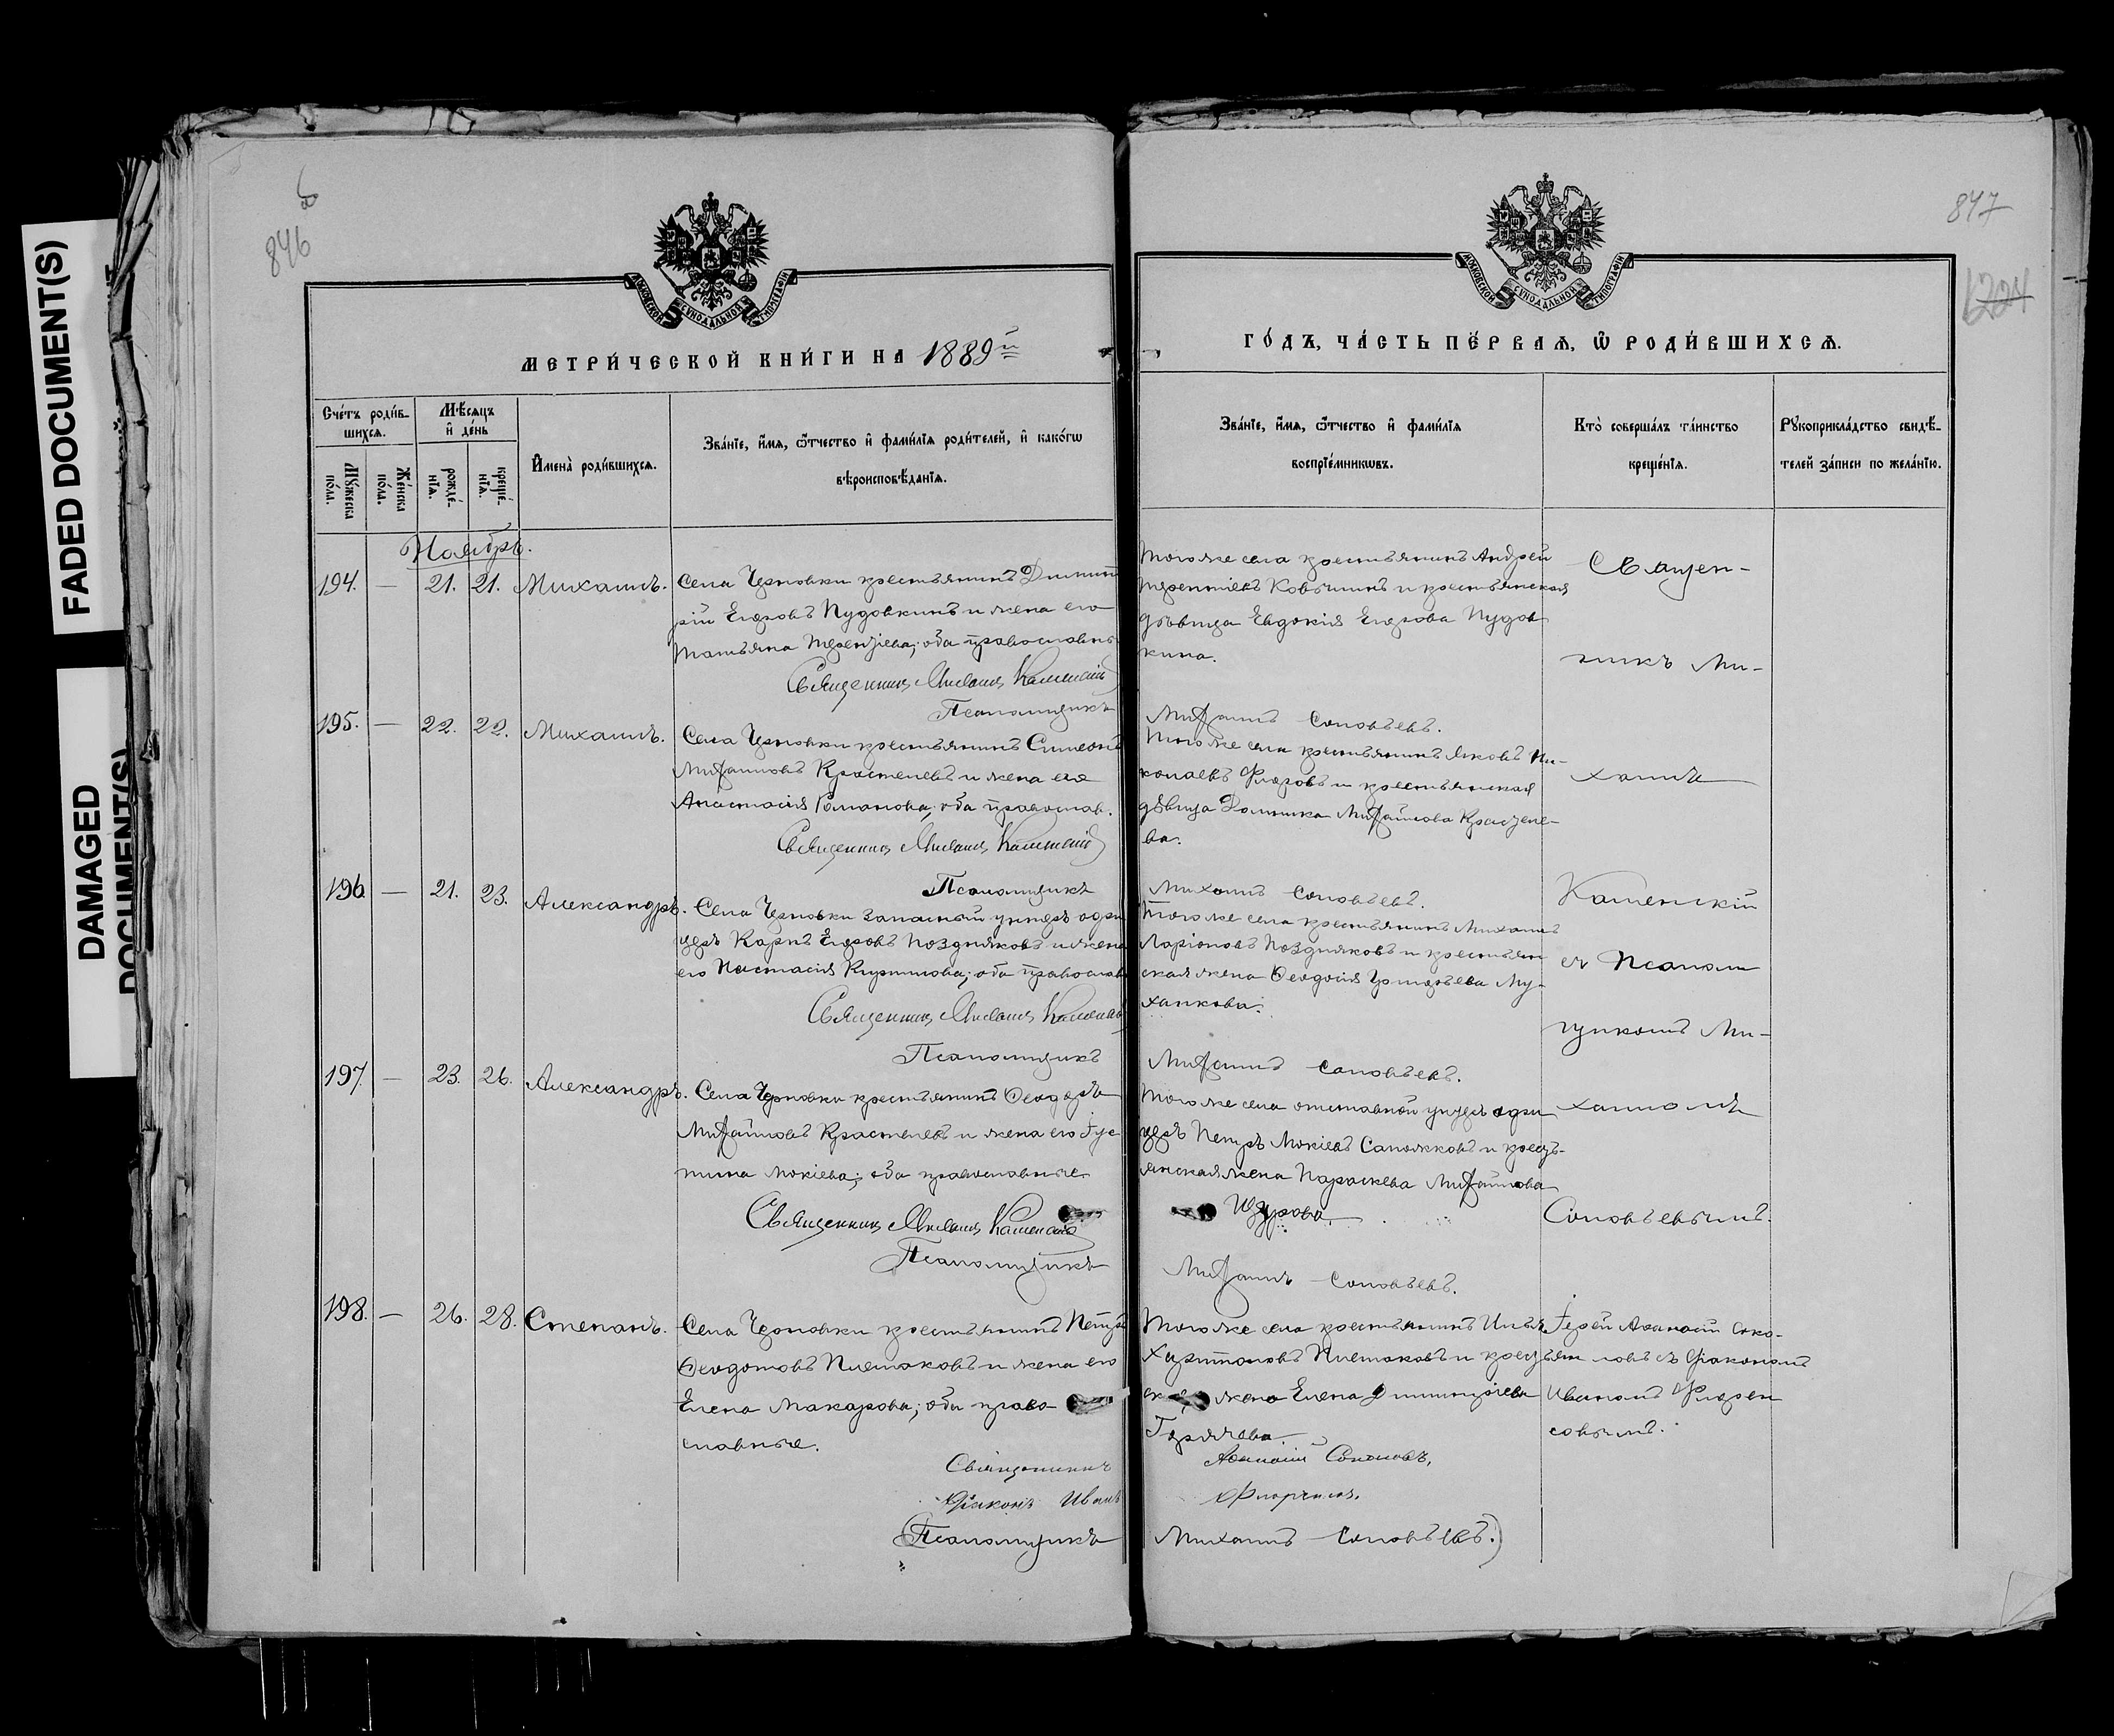 FADED DOCUMENT(S)
DAMAGED
DOCUMENT(S)
846
847
МОСКОВСКОЙ СУНОДАЛЬНОЙ ТИПОГРАФІИ
МОСКОВСКОЙ СУНОДАЛЬНОЙ ТИПОГРАФІИ
МЕТРИ́ЧЕСКОЙ КНИ́ГИ НА 1889й
ГО́ДЪ, ЧА́СТЬ ПЕ́РВАѦ, Ѡ РОДИ́ВШИХСѦ.
Сче́тъ роди́в-
шихсѧ.
Мꙋ́жеска
по́ла.
Же́нска
по́ла.
Мѣ́сѧцъ
и҆ де́нь
рожде́-
нїѧ.
креще́-
нїѧ.
И҆мена̀ роди́вшихсѧ.
Зва́нїе, и҆́мѧ, ѻ҆́тчество и҆ фами́лїѧ роди́телей, и҆ како́гѡ
вѣроисповѣ́данїѧ.
Зва́нїе, и҆́мѧ, ѻ҆́тчество и҆ фами́лїѧ
воспрїе́мникѡвъ.
Кто̀ соверша́лъ та́инство
креще́нїѧ.
Рꙋкоприкла́дство свидѣ́-
телей за́писи по жела́нїю.
Ноябрь.
194. — 21. 21. Михаилъ. Села Черновки крестьянинъ Димит
рій Егоровъ Пудовкинъ и жена его
Татьяна Терентіева; оба православны
Священникъ Михаилъ Каменскій
Псаломщикъ
Того же села крестьянинъ Андрей
Терентіевъ Ковычинъ и крестьянская
дѣвица Евдокія Егорова Пудов
кина.
Михаилъ Соловьевъ.
195. — 22. 22. Михаилъ. Села Черновки крестьянинъ Симеонъ
Михайловъ Крастелевъ и жена его
Анастасія Романова; оба православ.
Священникъ Михаилъ Каменскій
Псаломщикъ
Того же села крестьянинъ Яковъ Ни-
колаевъ Фроловъ и крестьянская
дѣвица Домника Михайлова Крастеле-
ва.
Михаилъ Соловьевъ.
196 — 21. 23. Александръ. Села Черновки запасный унтеръ офи
церъ Карпъ Егоровъ Поздняковъ и жена
его Настасія Кириллова; оба православ
Священникъ Михаилъ Каменскій
Псаломщикъ
Того же села крестьянинъ Михаилъ
Ларіоновъ Поздняковъ и крестьян
ская жена Ѳеодосія Григорьева Му-
ханкова.
Михаилъ Соловьевъ.
197. — 23. 26. Александръ. Села Черновки крестьянинъ Ѳеодоръ
Михайловъ Крастелевъ и жена его Іус
тина Мокіева; оба православные
Священникъ Михаилъ Каменскій
Псаломщикъ
Того же села отставной унтеръ офи
церъ Петръ Мокіевъ Сапожковъ и кресть-
янская жена Параскева Михайлова
Щурова
Михаилъ Соловьевъ.
Священ-
никъ Ми-
хаилъ
Каменскій
съ Псалом
щикомъ Ми-
хаиломъ
Соловьевымъ.
198. — 26. 28. Степанъ. Села Черновки крестьянинъ Петръ
Ѳеодотовъ Плетаковъ и жена его
Елена Макарова; оба право
славные.
Священникъ
Діаконъ Иванъ
(Псаломщикъ
Того же села крестьянинъ Илья
Харитоновъ Плетаковъ и крестьян
ск жена Елена Димитріева
Горячева
Аѳанасій Соколовъ,
Михаилъ Соловьевъ.)
Іерей Аѳанасій Соко-
ловъ съ діакономъ
Иваномъ Флорен
совымъ.